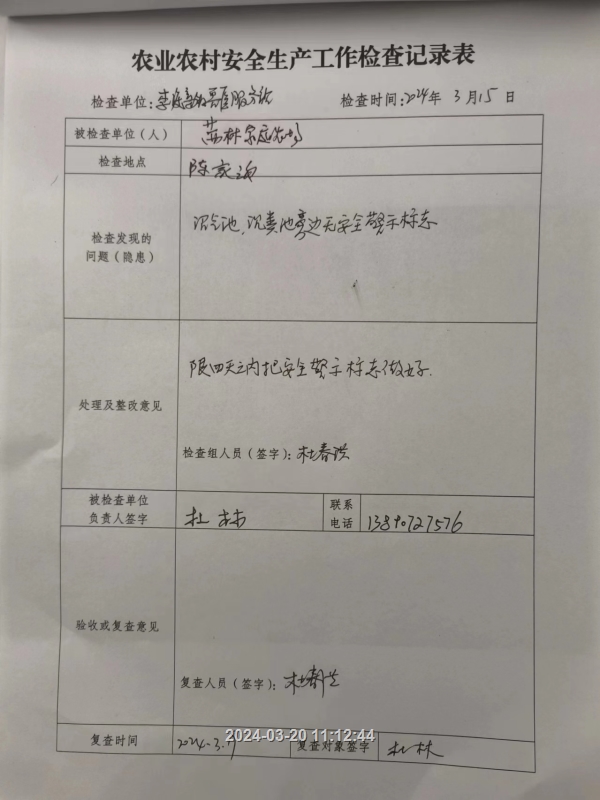 农业农村安全生产工作检查记录表
检查单位: 检查时间:2024年 3月15日
被检查单位(人) 苏林家庭农场
检查地点 陈家
检查发现的
问题(隐患)
沼气池、沉粪池旁边无安全警示标志
处理及整改意见
限四天之内把安全警示标志做好.
检查组人员(签字): 杜春洪
被检查单位
负责人签字
杜林
联系
电话
13890727576
验收或复查意见
复查人员(签字):
复查时间 2024-3.
复查对象签字 杜林
2024-03-20 11:12:44